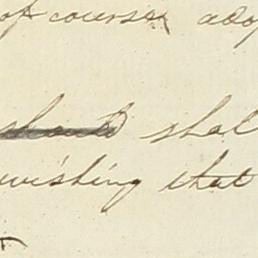 of course, ado
should shal
wishing that